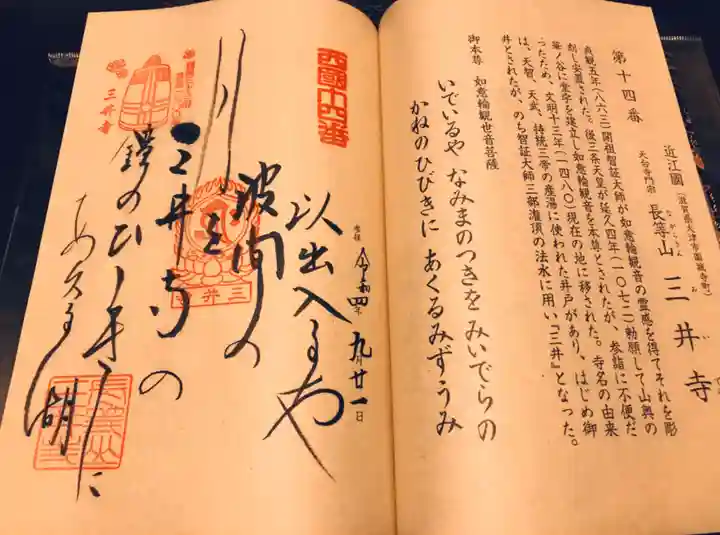 第十四番
近江國(滋賀県大津市園城寺町)
天台寺門宗 長等山 三井寺
ながらさん み
貞観五年(八六三)開祖智証大師が如意輪観音の霊感を得てそれを彫
刻し安置された。後三条天皇が延久四年(一〇七二)勅願して山奥の
華ノ谷に堂宇を建立し如意輪観音を本尊とされたが、参詣に不便だ
ったため、文明十三年(一四八〇)現在の地に移された。寺名の由来
は、天智、天武、持統三帝の産湯に使われた井戸があり、はじめ御
井とされたが、のち智証大師三部灌頂の法水に用い『三井』となった。
御本尊 如意輪観世音菩薩
いでいるや なみまのつきを みいでらの
かねのひびきに あくるみずうみ
西國十四番
令和四年 九月廿一日
以出入るや
波間の
月を
三井寺の
鐘のひびきに
あくる湖
三井寺
三井寺